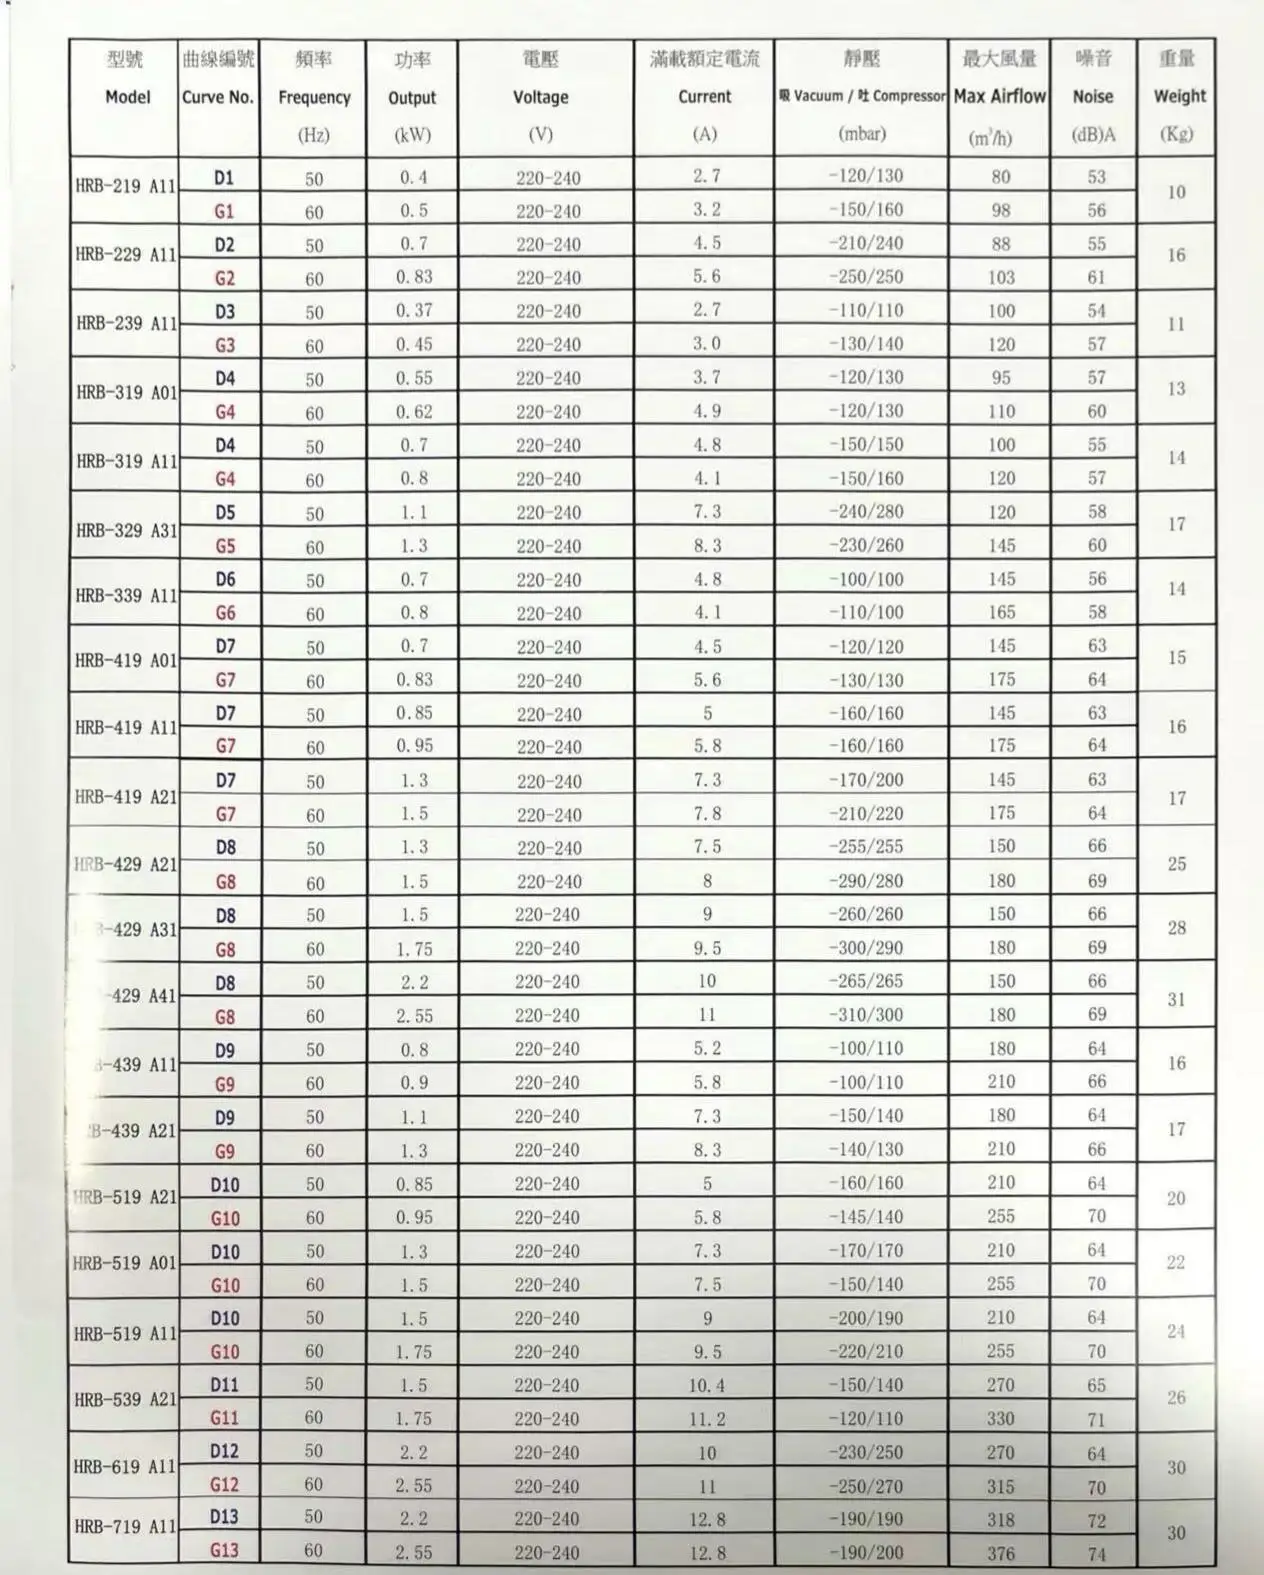 型號 曲線編號 頻率 功率 電壓 滿載額定電流 靜壓 最大風量 噪音 重量
Model Curve No. Frequency Output Voltage Current 吸 Vacuum / 吐 Compressor Max Airflow Noise Weight
(Hz) (kW) (V) (A) (mbar) (m³/h) (dB)A (Kg)
HRB-219 A11 D1 50 0.4 220-240 2.7 -120/130 80 53 10
G1 60 0.5 220-240 3.2 -150/160 98 56
HRB-229 A11 D2 50 0.7 220-240 4.5 -210/240 88 55 16
G2 60 0.83 220-240 5.6 -250/250 103 61
HRB-239 A11 D3 50 0.37 220-240 2.7 -110/110 100 54 11
G3 60 0.45 220-240 3.0 -130/140 120 57
HRB-319 A01 D4 50 0.55 220-240 3.7 -120/130 95 57 13
G4 60 0.62 220-240 4.9 -120/130 110 60
HRB-319 A11 D4 50 0.7 220-240 4.8 -150/150 100 55 14
G4 60 0.8 220-240 4.1 -150/160 120 57
HRB-329 A31 D5 50 1.1 220-240 7.3 -240/280 120 58 17
G5 60 1.3 220-240 8.3 -230/260 145 60
HRB-339 A11 D6 50 0.7 220-240 4.8 -100/100 145 56 14
G6 60 0.8 220-240 4.1 -110/100 165 58
HRB-419 A01 D7 50 0.7 220-240 4.5 -120/120 145 63 15
G7 60 0.83 220-240 5.6 -130/130 175 64
HRB-419 A11 D7 50 0.85 220-240 5 -160/160 145 63 16
G7 60 0.95 220-240 5.8 -160/160 175 64
HRB-419 A21 D7 50 1.3 220-240 7.3 -170/200 145 63 17
G7 60 1.5 220-240 7.8 -210/220 175 64
HRB-429 A21 D8 50 1.3 220-240 7.5 -255/255 150 66 25
G8 60 1.5 220-240 8 -290/280 180 69
-429 A31 D8 50 1.5 220-240 9 -260/260 150 66 28
G8 60 1.75 220-240 9.5 -300/290 180 69
-429 A41 D8 50 2.2 220-240 10 -265/265 150 66 31
G8 60 2.55 220-240 11 -310/300 180 69
-439 A11 D9 50 0.8 220-240 5.2 -100/110 180 64 16
G9 60 0.9 220-240 5.8 -100/110 210 66
B-439 A21 D9 50 1.1 220-240 7.3 -150/140 180 64 17
G9 60 1.3 220-240 8.3 -140/130 210 66
HRB-519 A21 D10 50 0.85 220-240 5 -160/160 210 64 20
G10 60 0.95 220-240 5.8 -145/140 255 70
HRB-519 A01 D10 50 1.3 220-240 7.3 -170/170 210 64 22
G10 60 1.5 220-240 7.5 -150/140 255 70
HRB-519 A11 D10 50 1.5 220-240 9 -200/190 210 64 24
G10 60 1.75 220-240 9.5 -220/210 255 70
HRB-539 A21 D11 50 1.5 220-240 10.4 -150/140 270 65 26
G11 60 1.75 220-240 11.2 -120/110 330 71
HRB-619 A11 D12 50 2.2 220-240 10 -230/250 270 64 30
G12 60 2.55 220-240 11 -250/270 315 70
HRB-719 A11 D13 50 2.2 220-240 12.8 -190/190 318 72 30
G13 60 2.55 220-240 12.8 -190/200 376 74